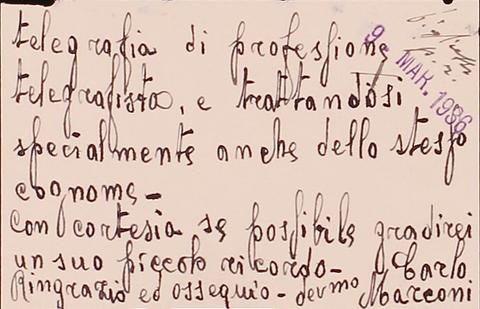 telegrafia di professione
telegrafista, e trattandosi
specialmente anche dello stesso
cognome -
con cortesia se possibile gradirei
un suo piccolo ricordo - Carlo
Ringrazio ed ossequio - dev.mo Marconi
9 MAR. 1936